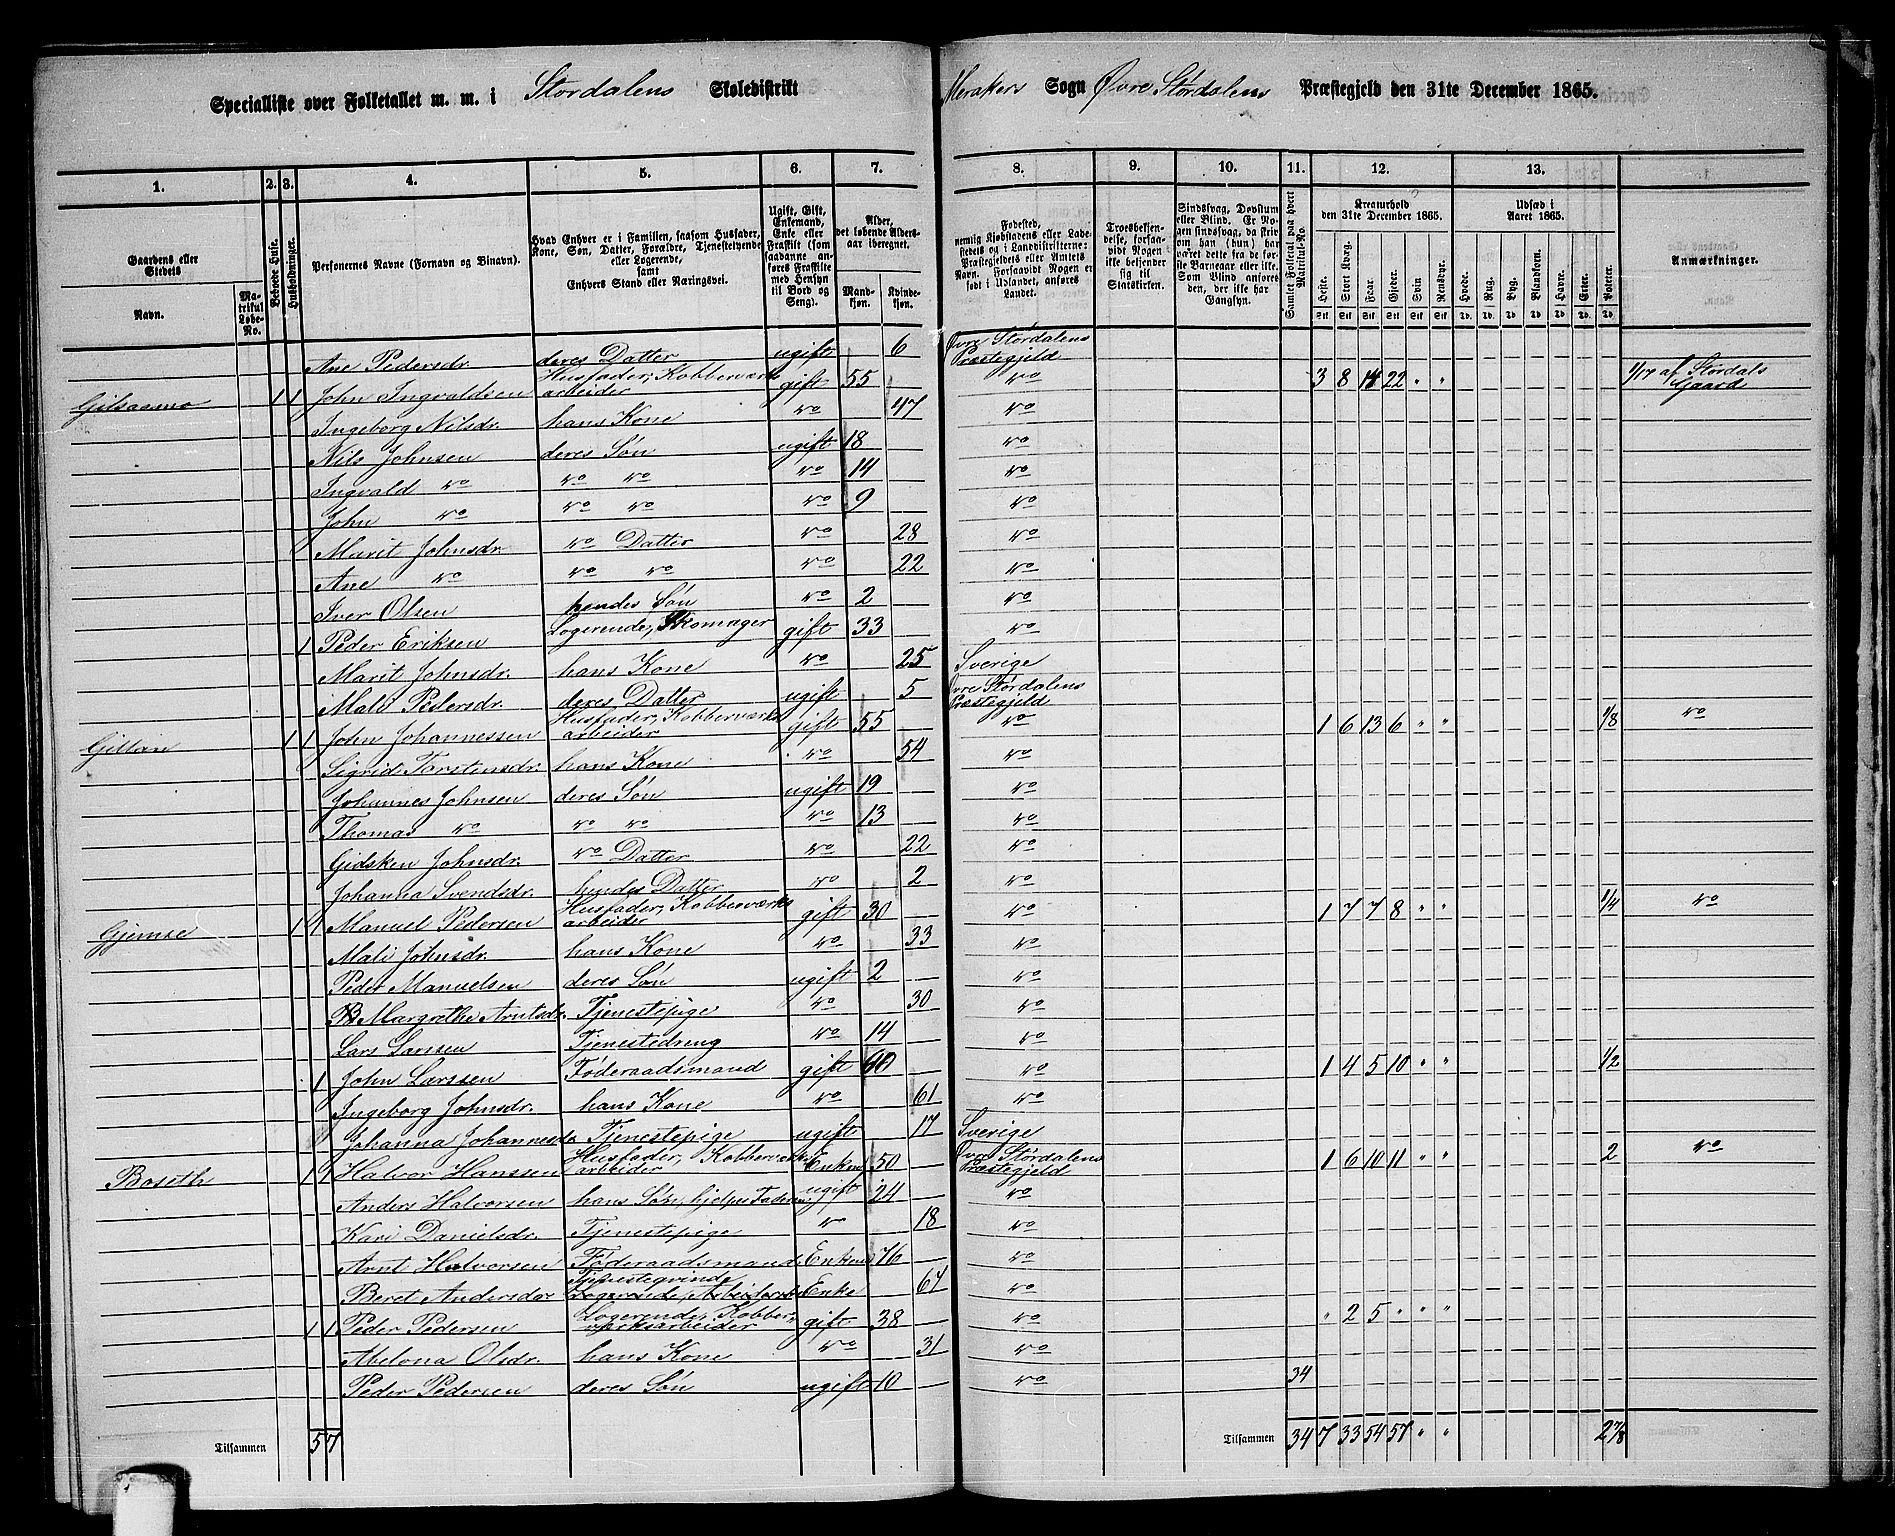 Specialliste over Folketallet m. m. i Stordalens Skoledistrikt Merakers Sogn Øvre Størdalens Præstegjeld den 31te December 1865.
1. 2. 3. 4. 5. 6. 7. 8. 9. 10. 11. 12. 13.
Gaardens eller Stedets Navn. Matrikul Løbe-No. Beboede Huse. Husholdninger. Personernes Navne (Fornavn og Binavn). Hvad Enhver er i Familien, saasom Husfader, Kone, Søn, Datter, Forældre, Tjenestetyende eller Logerende, samt Enhvers Stand eller Næringsvei. Ugift, Gift, Enkemand, Enke eller Fraskilt (som saadanne anføres Fraskilte med Hensyn til Bord og Seng). Alder, det løbende Aldersaar iberegnet. Mandkjøn. Kvindekjøn.
Fødested, nemlig Kjøbstadens eller Ladestedets og i Landdistrikterne: Præstegjeldets eller Amtets Navn. Forsaavidt Nogen er født i Udlandet, anføres Landet. Troesbekjendelse, forsaavidt Nogen ikke bekjender sig til Statskirken. Sindssvag, Døvstum eller Blind. Er Nogen sindssvag, da skrives om han (hun) har været dette fra de første Barneaar eller ikke. Som Blind anføres den, der ikke har Gangsyn. Samlet Folketal paa hvert Matrikul-No. Kreaturhold den 31te December 1865. Heste. Stort Kvæg. Faar. Gjeder. Svin. Rensdyr. Udsæd i Aaret 1865. Hvede. Rug. Byg. Blandkorn. Havre. Erter. Poteter. Anmærkninger.
Ane Pedersdr. deres Datter ugift 6 Øvre Størdalens Præstegjeld
Gilsaamo 1 1 John Ingvaldsen Husfader, Kobberværksarbeider gift 55 do 3 8 14 22 " " 1/17 af Stordals Gaard
Ingeborg Nilsdr. hans Kone do 47 do
Nils Johnsen deres Søn ugift 18 do
Ingvald do do do do 14 do
John do do do do 9 do
Marit Johnsdr. do Datter do 28 do
Ane do do do do 22 do
Iver Olsen hendes Søn do 2 do
1 Peder Eriksen Logerende, Skomager gift 33 do
Marit Johnsdr. hans Kone do 25 Sverige
Mali Pedersdr. deres Datter ugift 5 Øvre Størdalens Præstegjeld
Gillan 1 1 John Johannessen Husfader, Kobberværksarbeider gift 55 do 1 6 13 6 " " 1/8 do
Sigrid Torstensdr. hans Kone do 54 do
Johannes Johnsen deres Søn ugift 19 do
Thomas do do do do 13 do
Gidsken Johnsdr. do Datter do 22 do
Johanna Svendsdr. hendes Datter do 2 do
Gjemse 1 1 Manuel Pedersen Husfader, Kobberværksarbeider gift 30 do 1 7 7 8 " " 1/4 do
Mali Johnsdr. hans Kone do 33 do
Peder Manuelsen deres Søn ugift 2 do
B Margrethe Arntsdr. Tjenestepige do 30 do
Lars Larssen Tjenestedreng do 14 do
1 John Larssen Føderaadsmand gift 60 do 1 4 5 10 " " 1/2
Ingeborg Johnsdr. hans Kone do 61 do
Johanna Johannesdr. Tjenestepige ugift 17 Sverige
Boseth 1 1 Halvor Hanssen Husfader, Kobberværksarbeider Enkem. 50 Øvre Størdalens Præstegjeld 1 6 10 11 " " 2 do
Anders Halvorsen hans Søn, hjelper Faderen ugift 24 do
Kari Danielsdr. Tjenestepige do 18 do
Arnt Halvorsen Føderaadsmand Enkem 76 do
Beret Andersdr Tjenestegvinde Logerende, Enke 67 do
1 1 Peder Pedersen Logerende, Kobberværksarbeider gift 38 do " 2 5 " " "
Abelona Olsdr. hans Kone do 31 do
Peder Pedersen deres Søn ugift 10 do 34
Tilsammen 5 7 Tilsammen 34 7 33 54 57 " " 2 7/8